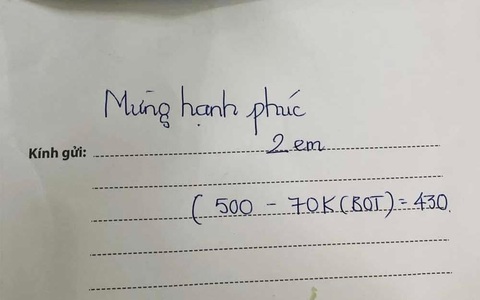 Mừng hạnh phúc
Kính gửi: 2 em
( 500 - 70K (BOT) = 430